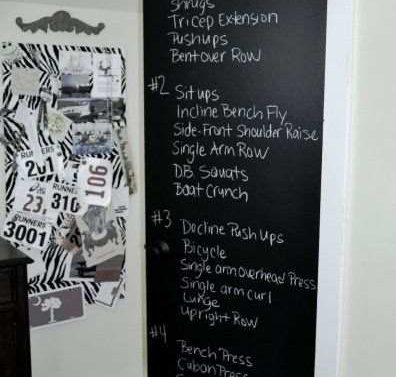 Shrugs
Tricep Extension
Pushups
Bentover Row
#2 Sit ups
Incline Bench Fly
Side-Front Shoulder Raise
Single Arm Row
DB Squats
Boat Crunch
#3 Decline Push Ups
Bicycle
Single arm overhead Press
Single arm curl
Lunge
Upright Row
#4
Bench Press
Cuban Press
201
106
RUNNE
310
23
RUNNERS
3001